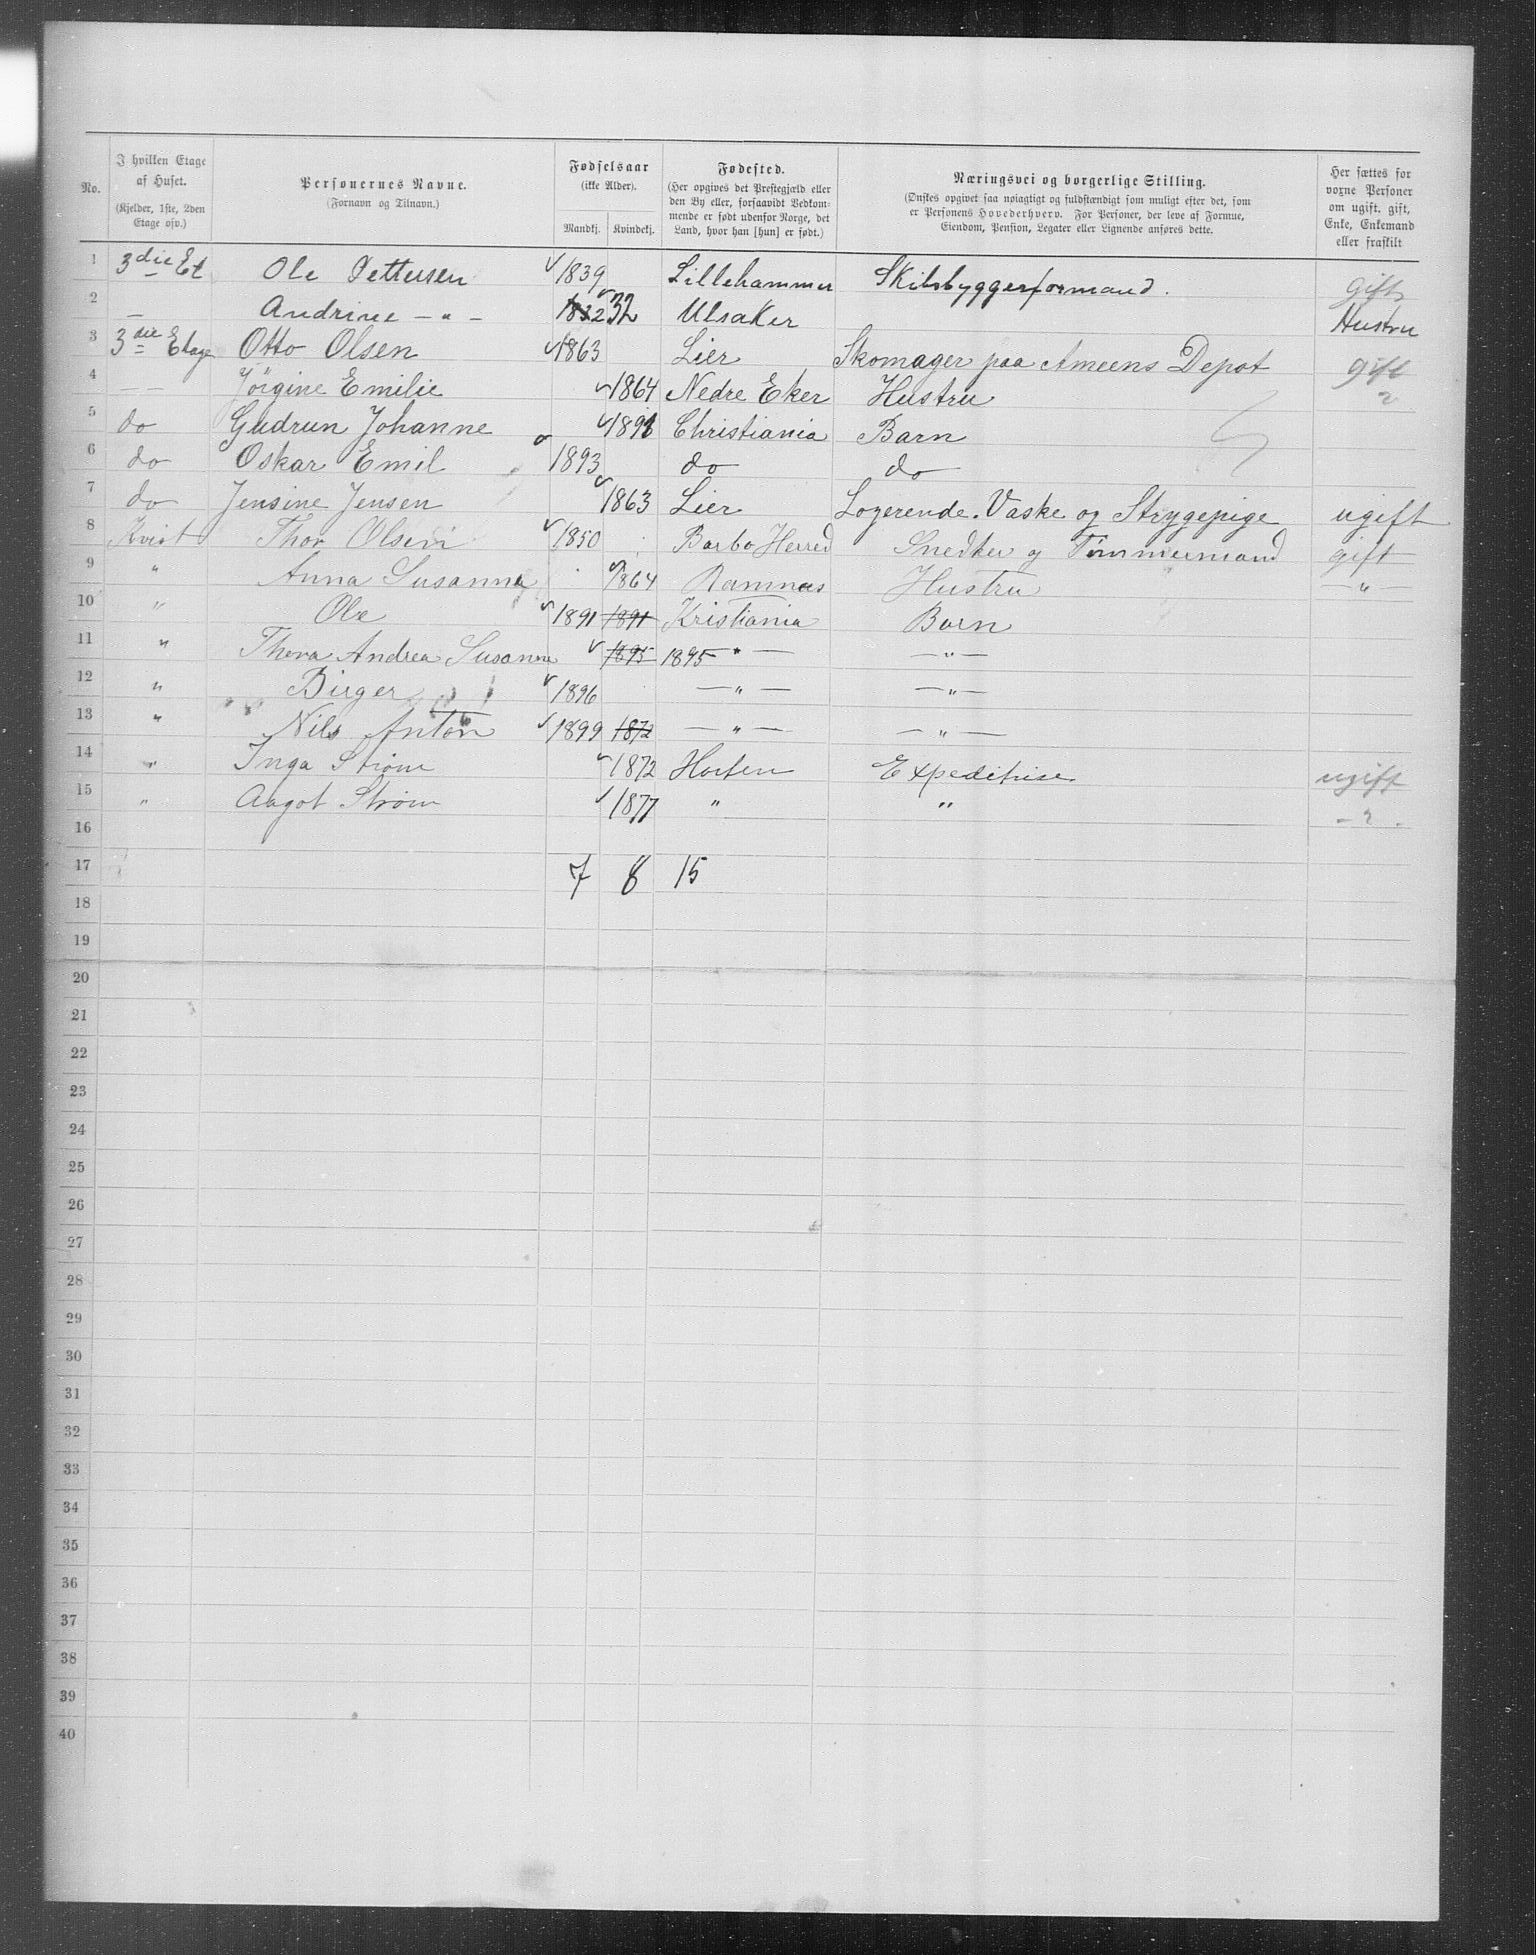 No.
I hvilken Etage
af Huset.
(Kjelder, 1ste, 2den
Etage osv.)
Personernes Navne.
(Fornavn og Tilnavn.)
Fødselsaar
(ikke Alder).
Mandkj. Kvindekj.
Fødested.
(Her opgives det Prestegjæld eller
den By eller, forsaavidt Vedkom-
mende er født udenfor Norge, det
Land, hvor han [hun] er født.)
Næringsvei og borgerlige Stilling.
(Ønskes opgivet saa nøiagtigt og fuldstændigt som muligt efter det, som
er Personens Hovederhverv. For Personer, der leve af Formue,
Eiendom, Pension, Legater eller Lignende anføres dette.
Her sættes for
voxne Personer
om ugift, gift,
Enke, Enkemand
eller fraskilt
1 3die Et Ole Pettersen 1839 Lillehammer Skibsbyggerformand. gift
2 — Andrine — " — 1832 32 Ulsaker Hustru
3 3die Etage Otto Olsen 1863 Lier Skomager paa Ameens Depot gift
4 — — Jörgine Emilie 1864 Nedre Eker Hustru "
5 do Gudrun Johanne 1891 Christiania Barn
6 do Oskar Emil 1893 do do
7 do Jensine Jensen 1863 Lier Logerende. Vaske og Strygepige ugift
8 Kvist Thor Olsen 1850 Barbo Herred Snedker og Tömmermand gift
9 " Anna Susanna 1864 Ramnæs Hustru — " —
10 " Ole 1891 1891 Kristiania Barn
11 " Thora Andrea Susanne 1895 1895 " — — " —
12 " Birger 1896 — " — — " —
13 " Nils Anton 1899 1872 — " — — " —
14 " Inga Strøm 1872 Horten Expeditrise ugift
15 " Aagot Strøm 1877 " " — " —
16
17 7 8 15
18
19
20
21
22
23
24
25
26
27
28
29
30
31
32
33
34
35
36
37
38
39
40